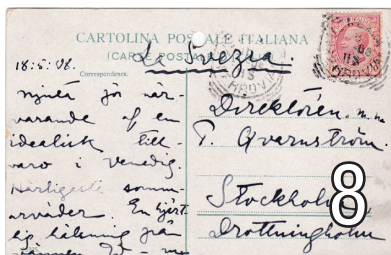 CARTOLINA POSTALE ITALIANA
(CARTE POSTALE
La Svezia.
18.5.08.
Correspondence.
Njuta för när-
varande af en
idealisk till-
varo i Venedig.
Härligaste somm-
arväder. En hjert-
lig hälsning från
Direktören, m.m.
P. Qvarnström.
Stockholm
Drottningholm
8